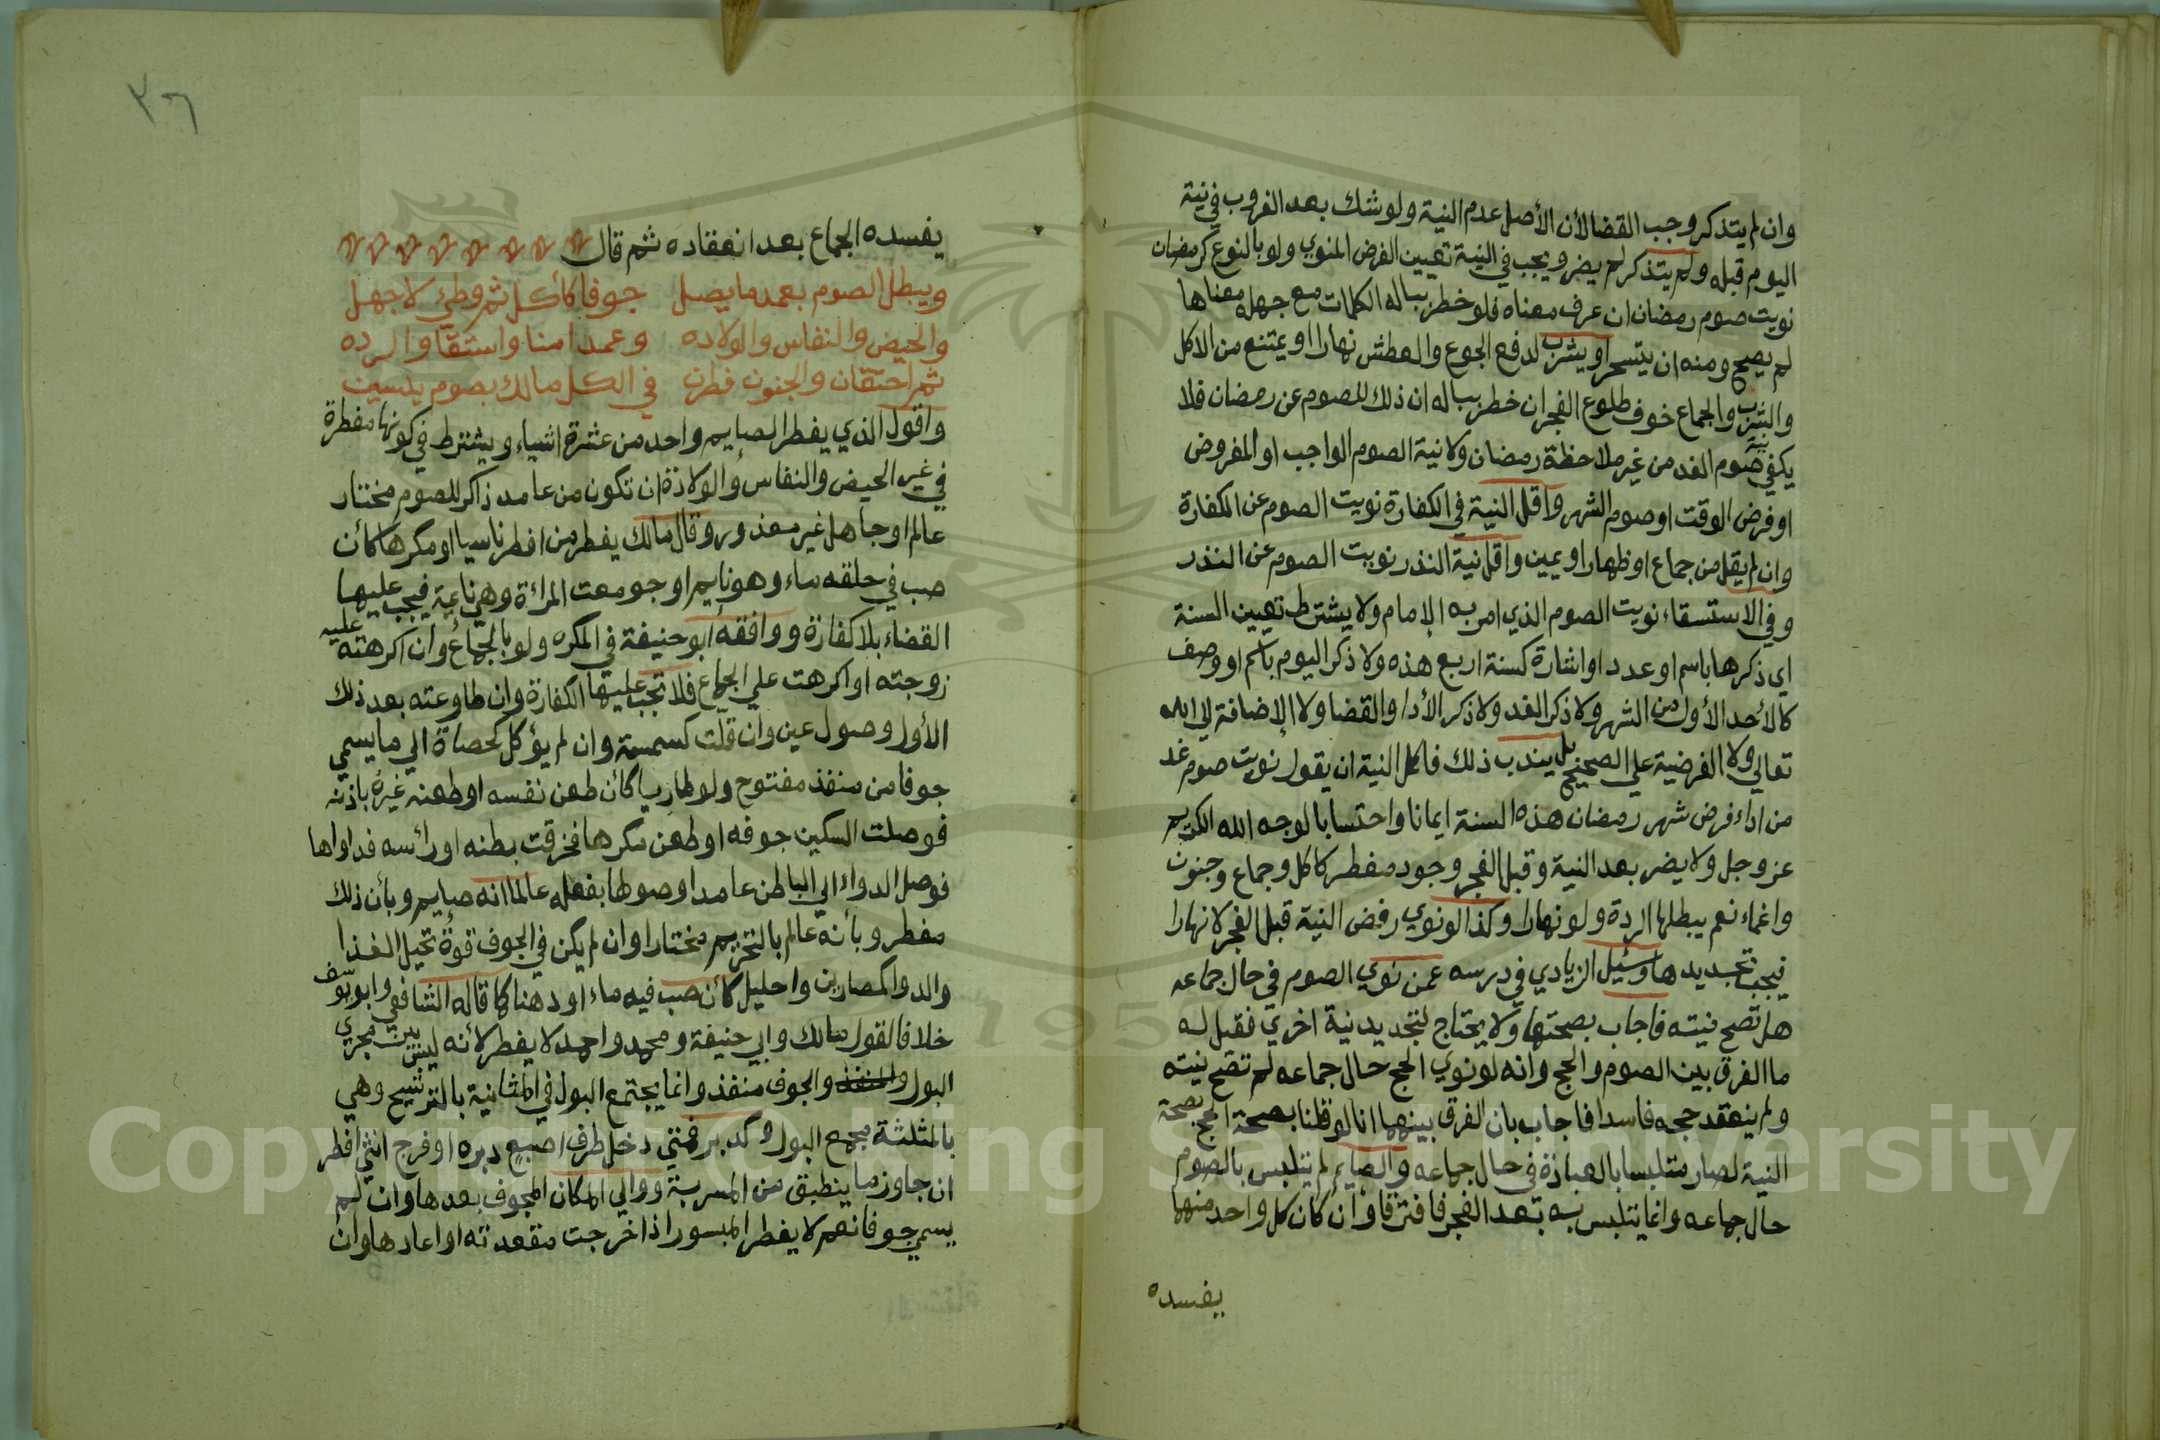 وان لم يتذكر وجب القضا لأن الأصل عدم النية ولو شك بعد الغروب في نية
اليوم قبله ولم يتذكر لم يضر ويجب في النية تعيين الفرض المنوي ولو بالنوع كرمضان
نويت صوم رمضان ان عرف معناه فلو خطر بباله الكلمات مع جهله معناها
لم يصح ومنه ان يتسحر او يشرب لدفع الجوع والعطش نهارا او يمتنع من الاكل
والشرب والجماع خوف طلوع الفجر ان خطر بباله ان ذلك للصوم عن رمضان فلا
يكفي نية صوم الغد من غير ملاحظة رمضان ولا نية الصوم الواجب او المفروض
او فرض الوقت او صوم الشهر واقل النية في الكفارة نويت الصوم عن الكفارة
وان لم يقل من جماع او ظهار او يمين واقل نية النذر نويت الصوم عن النذر
وفي الاستسقاء نويت الصوم الذي امر به الإمام ولا يشترط تعيين السنة
اي ذكرها باسم او عدد او اشارة كسنة اربع هذه ولا ذكر اليوم باسم او وصف
كالأحد الأول من الشهر ولا ذكر الغد ولا ذكر الأدا والقضا ولا الإضافة الى الله
تعالي ولا الفرضية علي الصحيح بل يندب ذلك فاكمل النية ان يقول نويت صوم غد
من اداء فرض شهر رمضان هذه السنة ايمانا واحتسابا لوجه الله الكريم
عز وجل ولا يضر بعد النية وقبل الفجر وجود مفطر كاكل وجماع وجنون
واغماء نعم يبطلها الردة ولو نهارا وكذا لو نوي رفض النية قبل الفجر لا نهارا
فيجب تجديدها وسئيل الزيادي في درسه عمن نوي الصوم في حال جماعه
هل تصح نيته فاجاب بصحتها ولا يحتاج لتجديد نية اخري فقيل له
ما الفرق بين الصوم والحج وانه لو نوي الحج حال جماعه لم تصح نيته
ولم ينعقد حجه فاسدا فاجاب بان الفرق بينهما انا لو قلنا بصحة الحج بصحة
النية لصار متلبسا بالعبادة في حال جماعه والصايم لم يتلبس بالصوم
حال جماعه وانما يتلبس به بعد الفجر فافترقا وان كان كل واحد منهما
يفسده
٣٦
يفسده الجماع بعد انعقاده ثم قال
ويبطل الصوم بعمد ما يصل جوفا كأكل ثم وطئ لا جهل
والحيض والنفاس والولاده وعمد امنا واستقا والرده
ثم احتقان والجنون فطرن في الكل مالك بصوم ينسين
واقول الذي يفطر الصايم واحد من عشرة اشياء ويشترط في كونها مفطرة
في غير الحيض والنفاس والولادة ان تكون من عامد ذاكر للصوم مختار
عالم او جاهل غير معذور وقال مالك يفطر من افطر ناسيا او مكرها كأن
صب في حلقه ماء وهو نايم او جومعت المراة وهي نائمة فيجب عليها
القضاء بلا كفارة ووافقه ابو حنيفة في المكره ولو بالجماع وان اكرهته عليه
زوجته او اكرهت علي الجماع فلا تجب عليها الكفارة وان طاوعته بعد ذلك
الأول وصول عين وان قلت كسمسمة وان لم يؤكل كحصاة الي ما يسمي
جوفا من منفذ مفتوح ولو طاريا كأن طعن نفسه او طعنه غيره باذنه
فوصلت السكين جوفه او طعن مكرها فخرقت بطنه او رائسه فداواها
فوصل الدواء الي الباطن عامدا وصولها بفعله عالما انه صايم وبأن ذلك
مفطر وبأنه عالم بالتحريم مختارا وان لم يكن في الجوف قوة تحيل الغذا
والدوا كالمصارين واحليل كأن صب فيه ماء او دهنا كما قاله الشافعي وابو يوسف
خلافا لقول مالك وابي حنيفة ومحمد واحمد لا يفطر لأنه ليس بين مجري
البول والجوف منفذ وانما يجتمع البول في المثانية بالترشيح وهي
بالمثلثة مجمع البول وكدبر فمتي دخل طرف اصبع دبره او فرج انثي افطر
ان جاوز ما ينطبق من المسربة ووالي المكان المجوف بعدها وان لم
يسمي جوفا نعم لا يفطر المبسور اذا خرجت مقعدته او اعادها وان